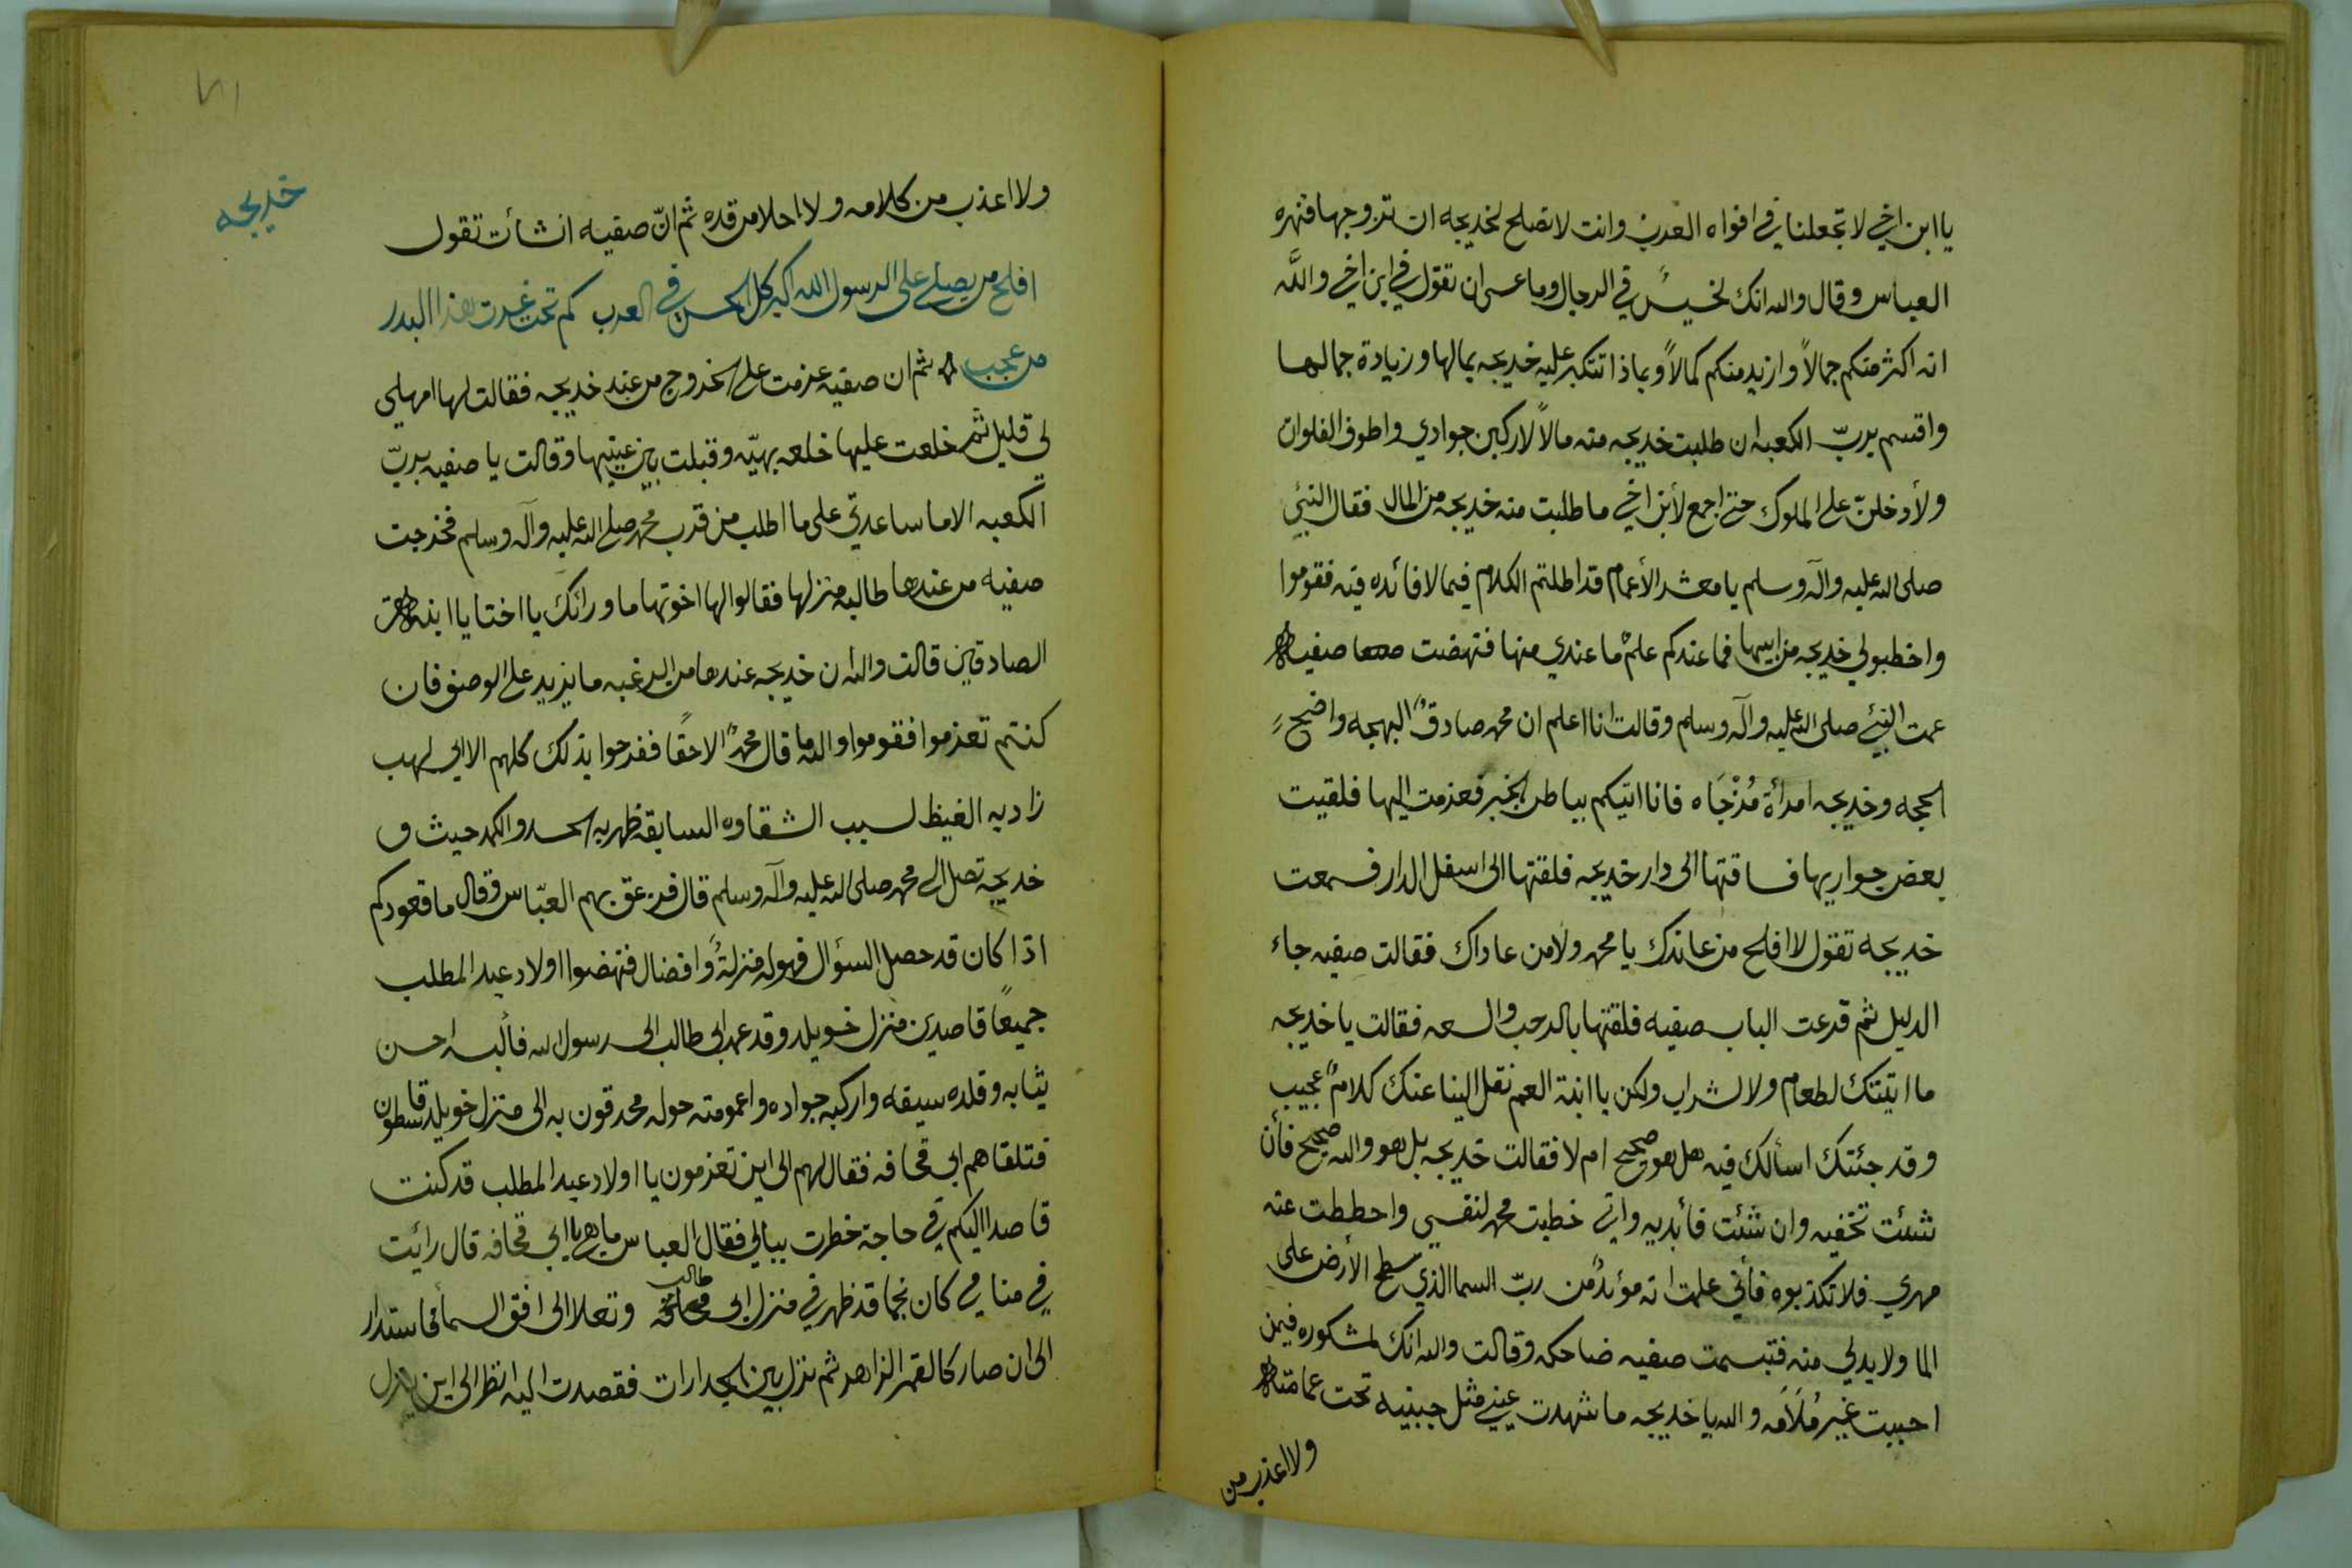 يا ابن اخي لا تجعلنا في افواه العرب وانت لا تصلح لخديجه ان تتزوجها فنهره
العباس وقال والله انك لخسيسٌ في الرجال وما عسى ان تقول في ابن اخي والله
انه اكثر منكم جمالاً وازيد منكم كمالاً وبماذا تتكبر عليه خديجه بمالها وزيادة جمالها
واقسم بربّ الكعبه ان طلبت خديجه منه مالاً لاركبن جوادي واطوف الفلوات
ولأدخلنّ على الملوك حتى اجمع لأبن اخي ما طلبت منه خديجه من المال فقال النبي
صلى الله عليه وآله وسلم يا معشر الأعمام قد اطلتم الكلام فيما لا فائده فيه فقوموا
واخطبو لي خديجه من ابيها فما عندكم علمٌ ما عندي منها فنهضت صفيه
عمت النبي صلى الله عليه وآله وسلم وقالت انا اعلم ان محمد صادقٌ البهجه واضحٍ
الحجه وخديجه امرأة مُزْجَاه فانا اتيكم بباطن الخبر فعزمت اليها فلقيت
بعض جواريها فساقتها الى دار خديجه فلقتها الى اسفل الدار فسمعت
خديجه تقول لا افلح من عاندك يا محمد ولا من عاداك فقالت صفيه جاء
الدليل ثم قرعت الباب صفيه فلقتها بالرحب والسعه فقالت يا خديجه
ما اتيتك لطعام ولا لشراب ولكن يا ابنة العم نقل الينا عنك كلامٌ عجيب
وقد جئتك اسألك فيه هل هو صحيح ام لا فقالت خديجه بل هو والله صحيح فأن
شئت تخفيه وان شئت فأبديه واني خطبت محمد لنفسي واحططت عنه
مهري فلا تكذبوه فأني علمت انه مؤيدٌ من ربّ السما الذي سطح الأرض على
الما ولا بد لي منه فتبسمت صفيه ضاحكه وقالت والله انك لمشكوره فيمن
احببت غير مُلَامَه والله يا خديجه ما شهدت عيني مثل جبنيه تحت عمامته
ولا اعذب من
خديجه
ولا اعذب من كلامه ولا احلا من قده ثم انّ صفيه انشأت تقول
افلح من يصلي على الرسول الله اكبر كل الحسن في العرب كم تحت غرت هذا البدر
من عجب ثم ان صفيه عزمت على الخروج من عند خديجه فقالت لها امهلي
لي قليل ثم خلعت عليها خلعه بهيّه وقبلت بين عينيها وقالت يا صفيه بربّ
الكعبه الا ما ساعدتي على ما اطلب من قرب محمد صلى الله عليه وآله وسلم فخرجت
صفيه من عندها طالبه منزلها فقالوا لها اخوتها ما ورائك يا اختا يا ابنه
الصادقين قالت والله ان خديجه عندها من الرغبه ما يزيد على الوصف فان
كنتم تعزموا فقوموا والله ما قال محمدٌ الا حقًا ففرحوا بذلك كلهم الا ابي لهب
زاد به الغيظ لسبب الشقاوه السابقه ظهر به الحسد والكمد حيث و
خديجه تصل الى محمد صلى الله عليه وآله وسلم قال فزعق بهم العبّاس وقال ما قعودكم
اذا كان قد حصل السؤال فهو له منزلةً وافضال فنهضوا اولاد عبد المطلب
جميعًا قاصدين منزل خويلد وقد عمد ابي طالب الى رسول الله فألبسه احسن
ثيابه وقلده سيفه واركبه جواده واعمومته حوله محدقون به الى منزل خويلد قاسطون
فتلقاهم ابي قحافه فقال لهم الى اين تعزمون يا اولاد عبد المطلب قد كنت
قاصدا اليكم في حاجة خطرت ببالي فقال العباس ما هي يا ابي قحافه قال رائيت
في منامي كان نجما قد ظهر في منزل ابي طالب وتعلا الى افق السمأ فاستدار
الى ان صار كالقمر الزاهر ثم نزل بين الجدارات فقصدت اليه انظر الى اين ينزل